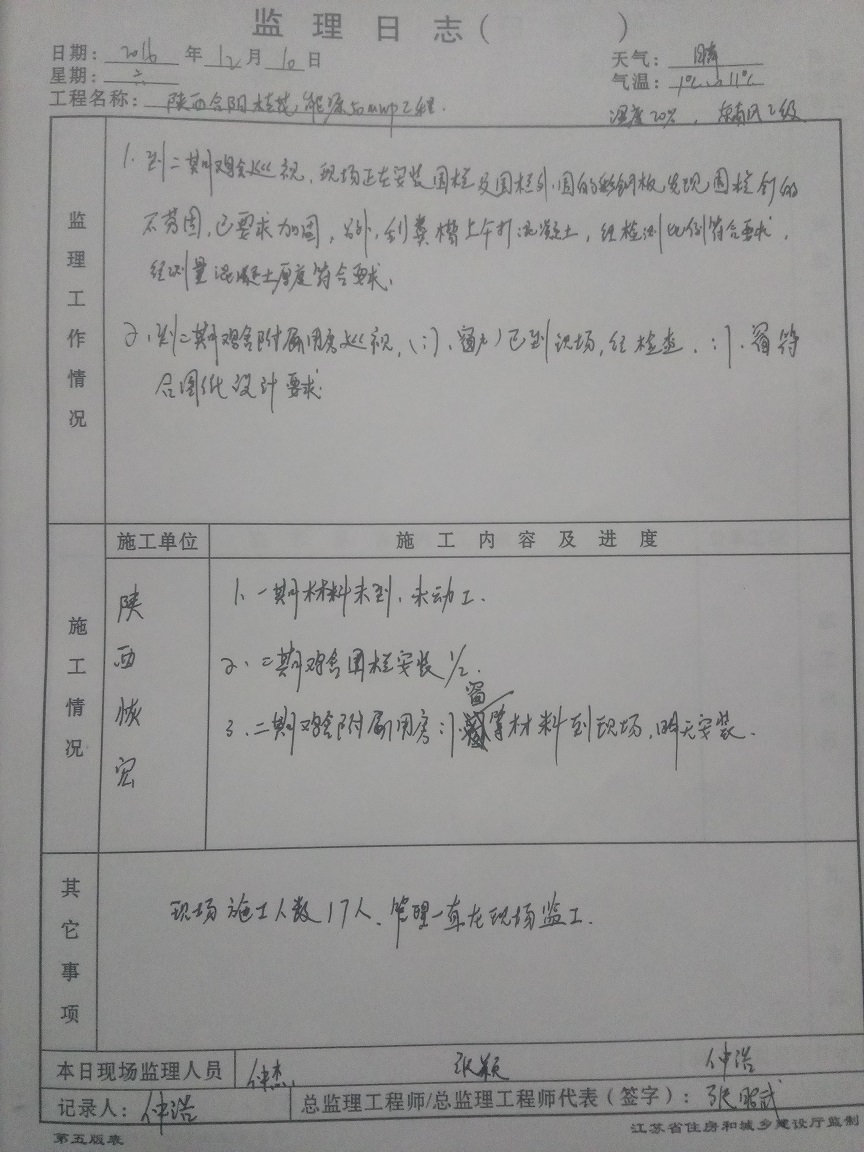 监理日志（ ）
日期：2016年12月10日
天气：晴
星期：六
气温：1℃~11℃
工程名称：陕西合阳
湿度20%，东南风2级
监理工作情况
1、到二期鸡舍巡视，现场正在安装围栏及围栏外围的彩钢板发现围栏钉的
不劳固，已要求加固，另外，刮粪槽上午打混凝土，经检测比例符合要求，
经测量混凝土厚度符合要求。
2、到二期鸡舍附属用房巡视，（门、窗户）已到现场，经检查，门、窗符
合图纸设计要求。
施工情况
施工单位
施工内容及进度
陕西恢宏
1、一期材料未到，未动工。
2、二期鸡舍围栏安装1/2。
3、二期鸡舍附属用房门窗等材料到现场，明天安装。
其它事项
现场施工人数17人、管理一直在现场监工。
本日现场监理人员 仲杰 张颖 仲浩
记录人：仲浩
总监理工程师/总监理工程师代表（签字）：张昭武
第五版表
江苏省住房和城乡建设厅监制